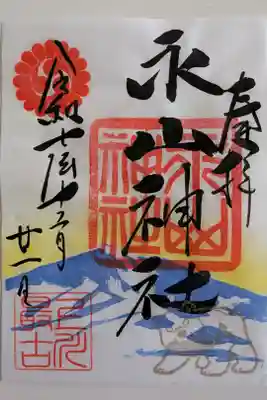 奉拝
永山神社
永山神社
令和七年十二月
廿一日